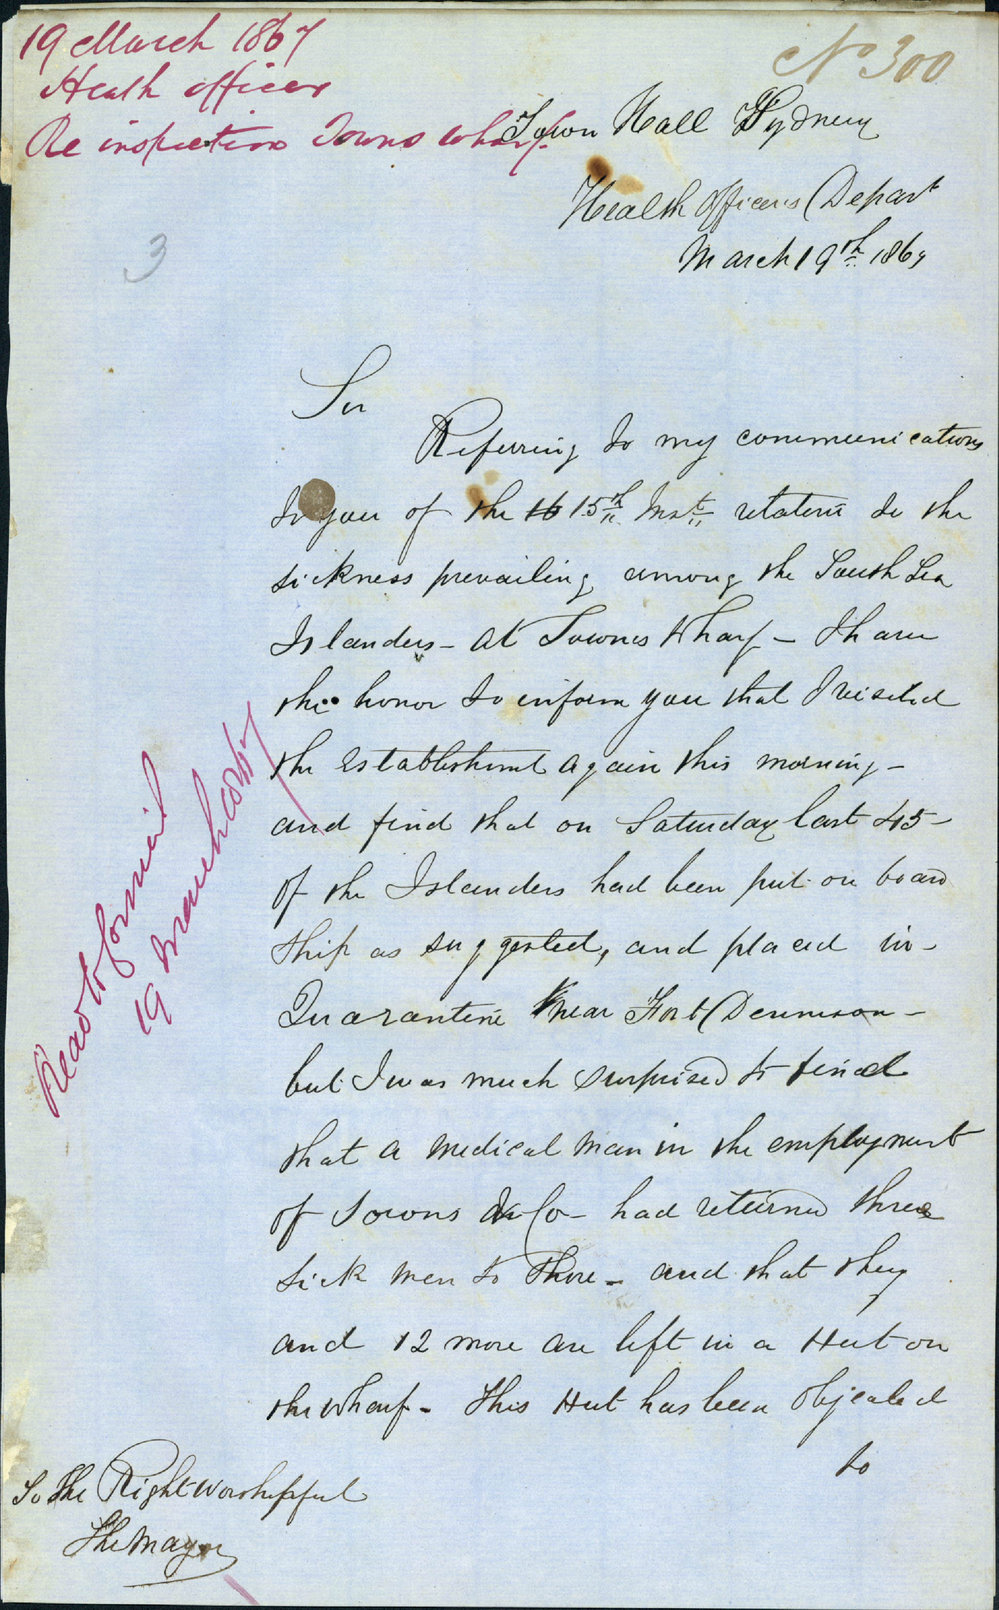 19 March 1867
Heath officer
Re inspection Towns wharf
No 300
Town Hall Sydney
Health Officers Depart
March 19th 1867
3
Sir
Referring to my communications
to you of the 15th Inst relative to the
sickness prevailing among the South Sea
Islanders - at Townes Wharf - I have
the honor to inform you that I visited
the Establishment again this morning -
and find that on Saturday last 45 -
of the Islanders had been put on board
Ship as suggested, and placed in -
Quarantine near Fort Dennison -
but I was much surprised to find
that a Medical Man in the employment
of Towns & Co - had returned three
sick men to Shore - and that they
and 12 more are left in a Hut on
the Wharf - This Hut has been objected
to
Read to Council
19 March 1867
To The Right Worshipful
The Mayor